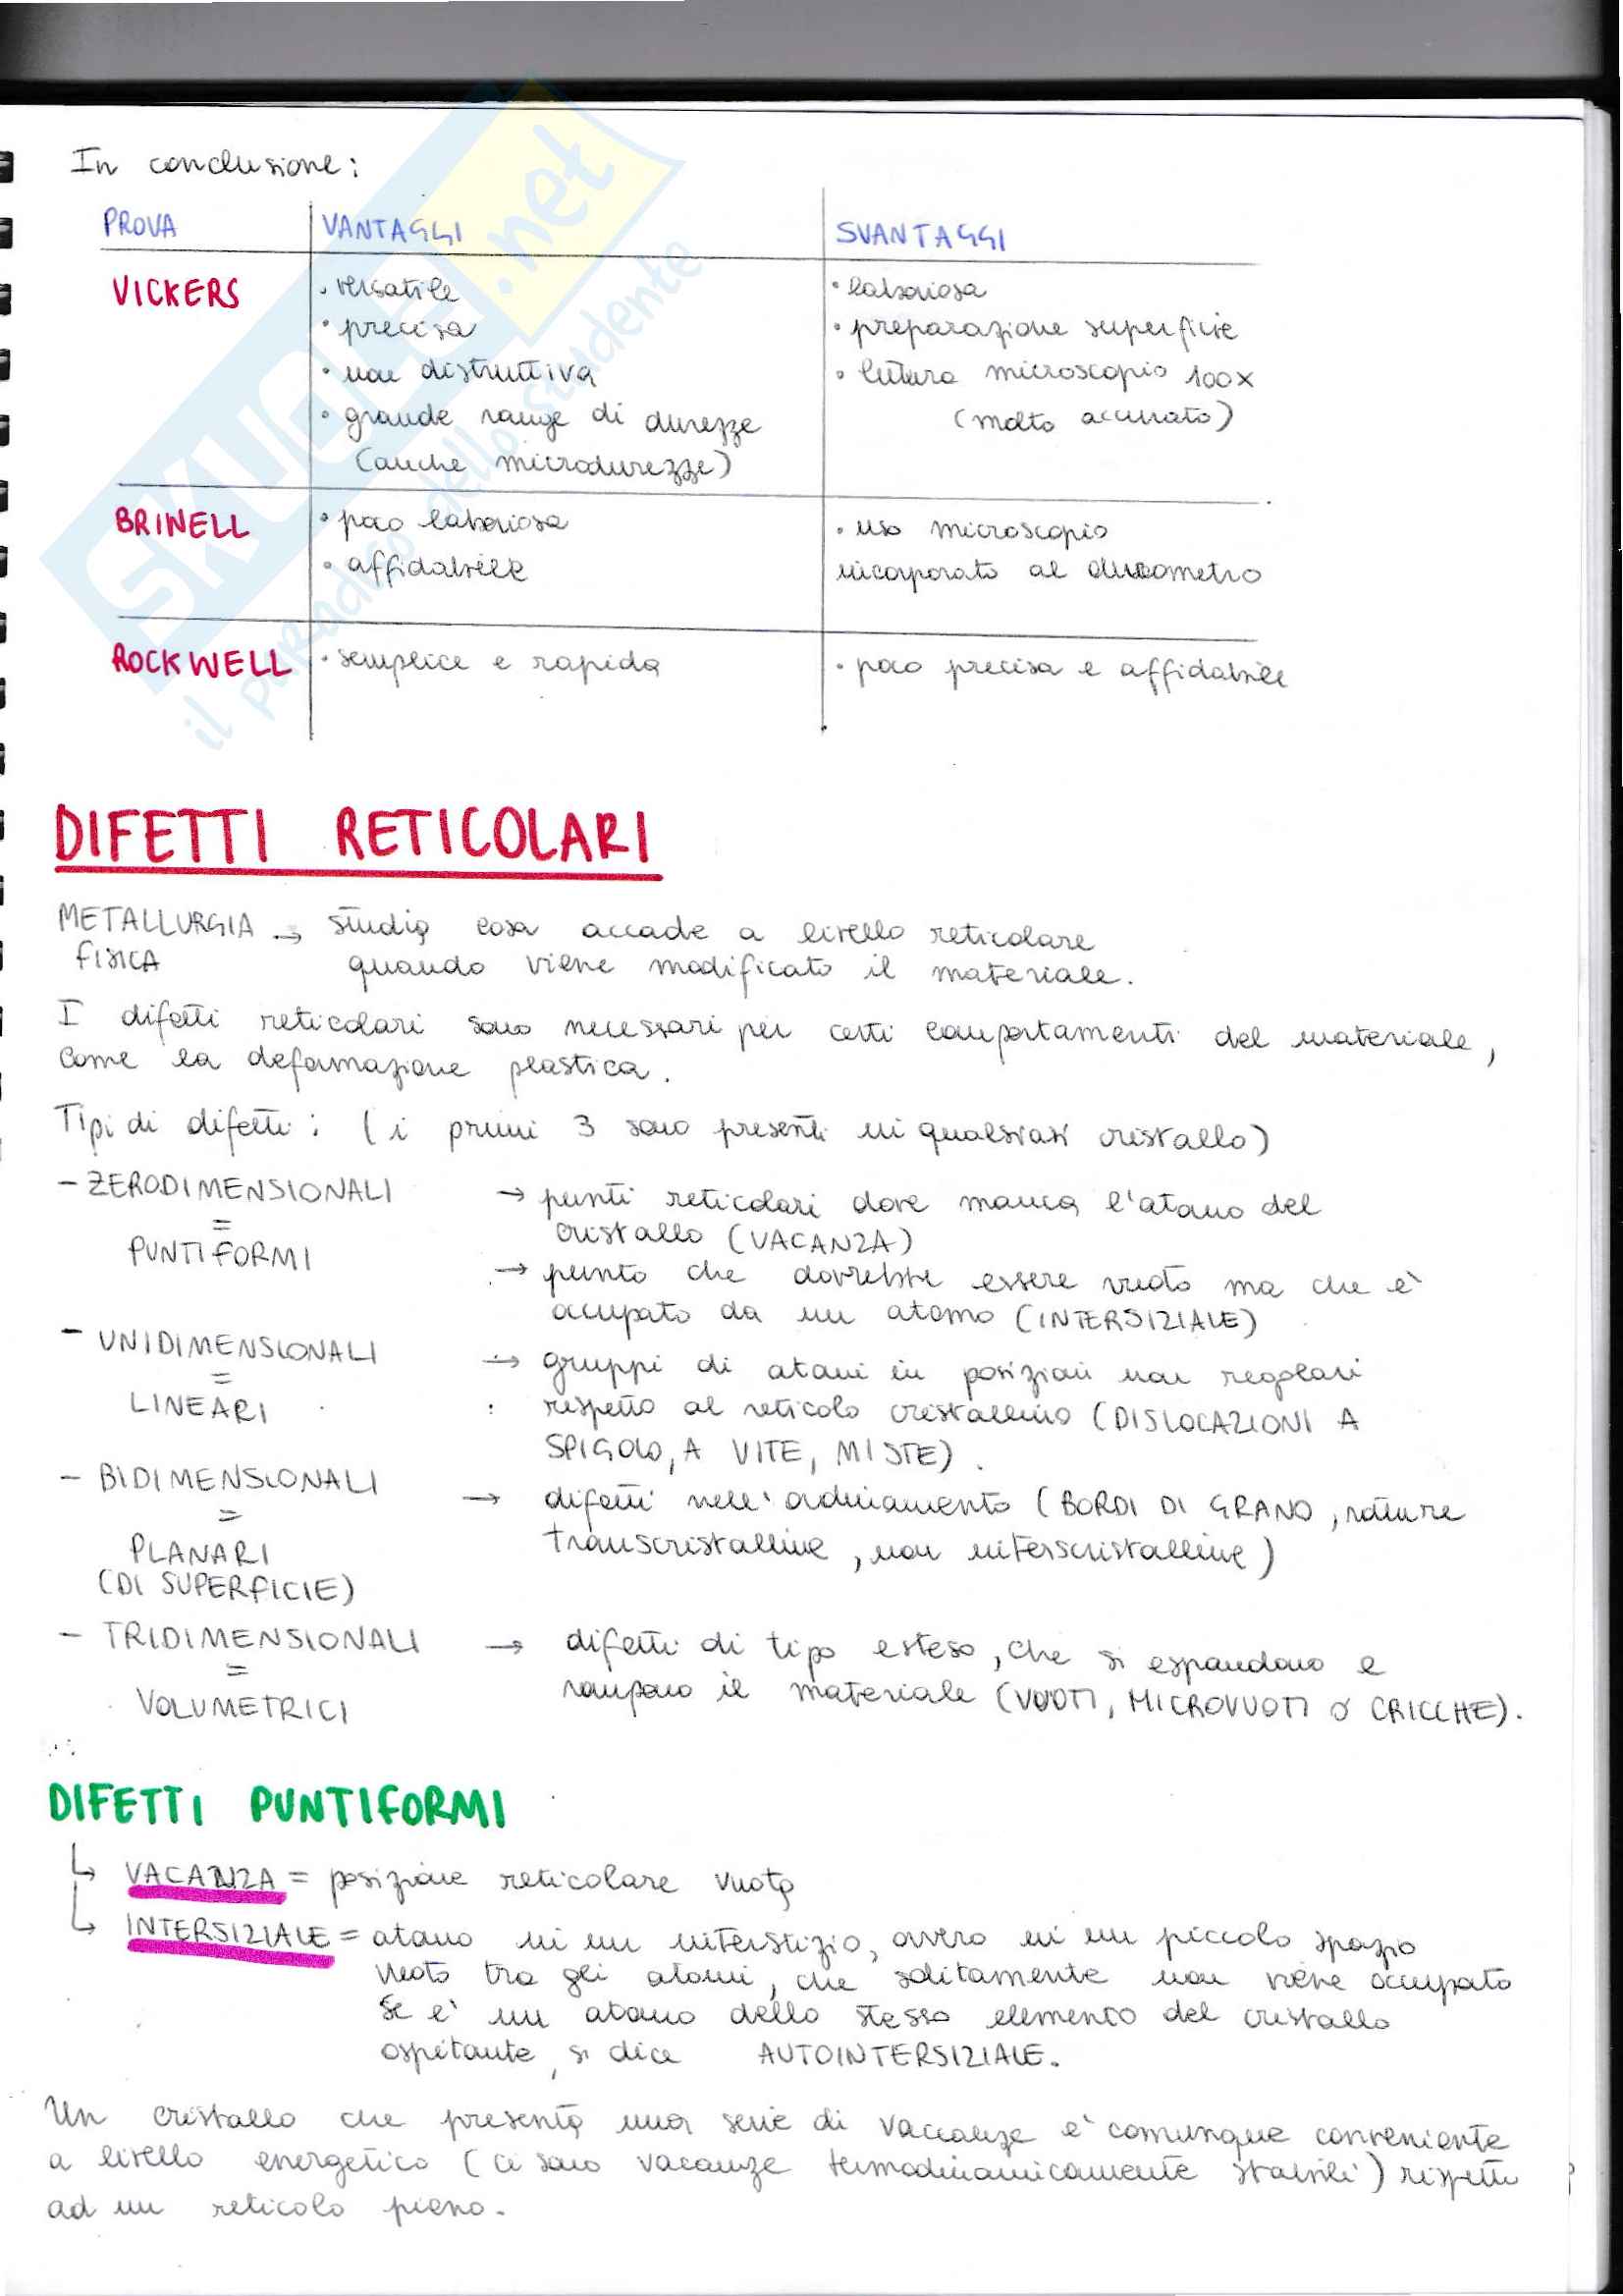 In conclusione:
PROVA VANTAGGI SVANTAGGI
VICKERS • versatile • laboriosa
• precisa • preparazione superficie
• non distruttiva • lettura microscopio 100x
• grande range di durezze (molto accurato)
(anche microdurezze)
BRINELL • poco laboriosa • uso microscopio
• affidabile incorporato al durometro
ROCKWELL • semplice e rapida • poco precisa e affidabile
SKUOLA.net
il paradiso dello studente
DIFETTI RETICOLARI
METALLURGIA → studia cosa accade a livello reticolare
FISICA quando viene modificato il materiale.
I difetti reticolari sono necessari per certi comportamenti del materiale,
come la deformazione plastica.
Tipi di difetti: (i primi 3 sono presenti in qualsiasi cristallo)
- ZERODIMENSIONALI → punti reticolari dove manca l'atomo del
= cristallo (VACANZA)
PUNTIFORMI → punto che dovrebbe essere vuoto ma che è
occupato da un atomo (INTERSIZIALE)
- UNIDIMENSIONALI → gruppi di atomi in posizioni non regolari
= rispetto al reticolo cristallino (DISLOCAZIONI A
LINEARI SPIGOLO, A VITE, MISTE).
- BIDIMENSIONALI → difetti nell'ordinamento (BORDI DI GRANO, rotture
= transcristalline, non interscristalline)
PLANARI
(DI SUPERFICIE)
- TRIDIMENSIONALI → difetti di tipo esteso, che si espandono e
= rompono il materiale (VUOTI, MICROVUOTI o CRICCHE).
VOLUMETRICI
DIFETTI PUNTIFORMI
↳ VACANZA = posizione reticolare vuota
↳ INTERSIZIALE = atomo in un interstizio, ovvero in un piccolo spazio
vuoto tra gli atomi, che solitamente non viene occupato
Se è un atomo dello stesso elemento del cristallo
ospitante, si dice AUTOINTERSIZIALE.
Un cristallo che presenta una serie di vacanze è comunque conveniente
a livello energetico (ci sono vacanze termodinamicamente stabili) rispetto
ad un reticolo pieno.